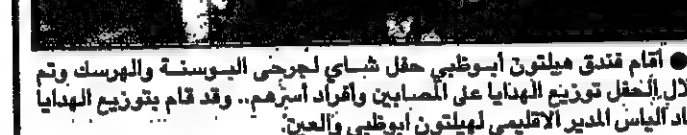 ● أقام فندق هيلتون أبوظبي حفل شاي لجرحى البوسنة والهرسك وتم
لال الحفل توزيع الهدايا على المصابين وأفراد أسرهم.. وقد قام بتوزيع الهدايا
اد الياس المدير الاقليمي لهيلتون ابوظبي والعين.